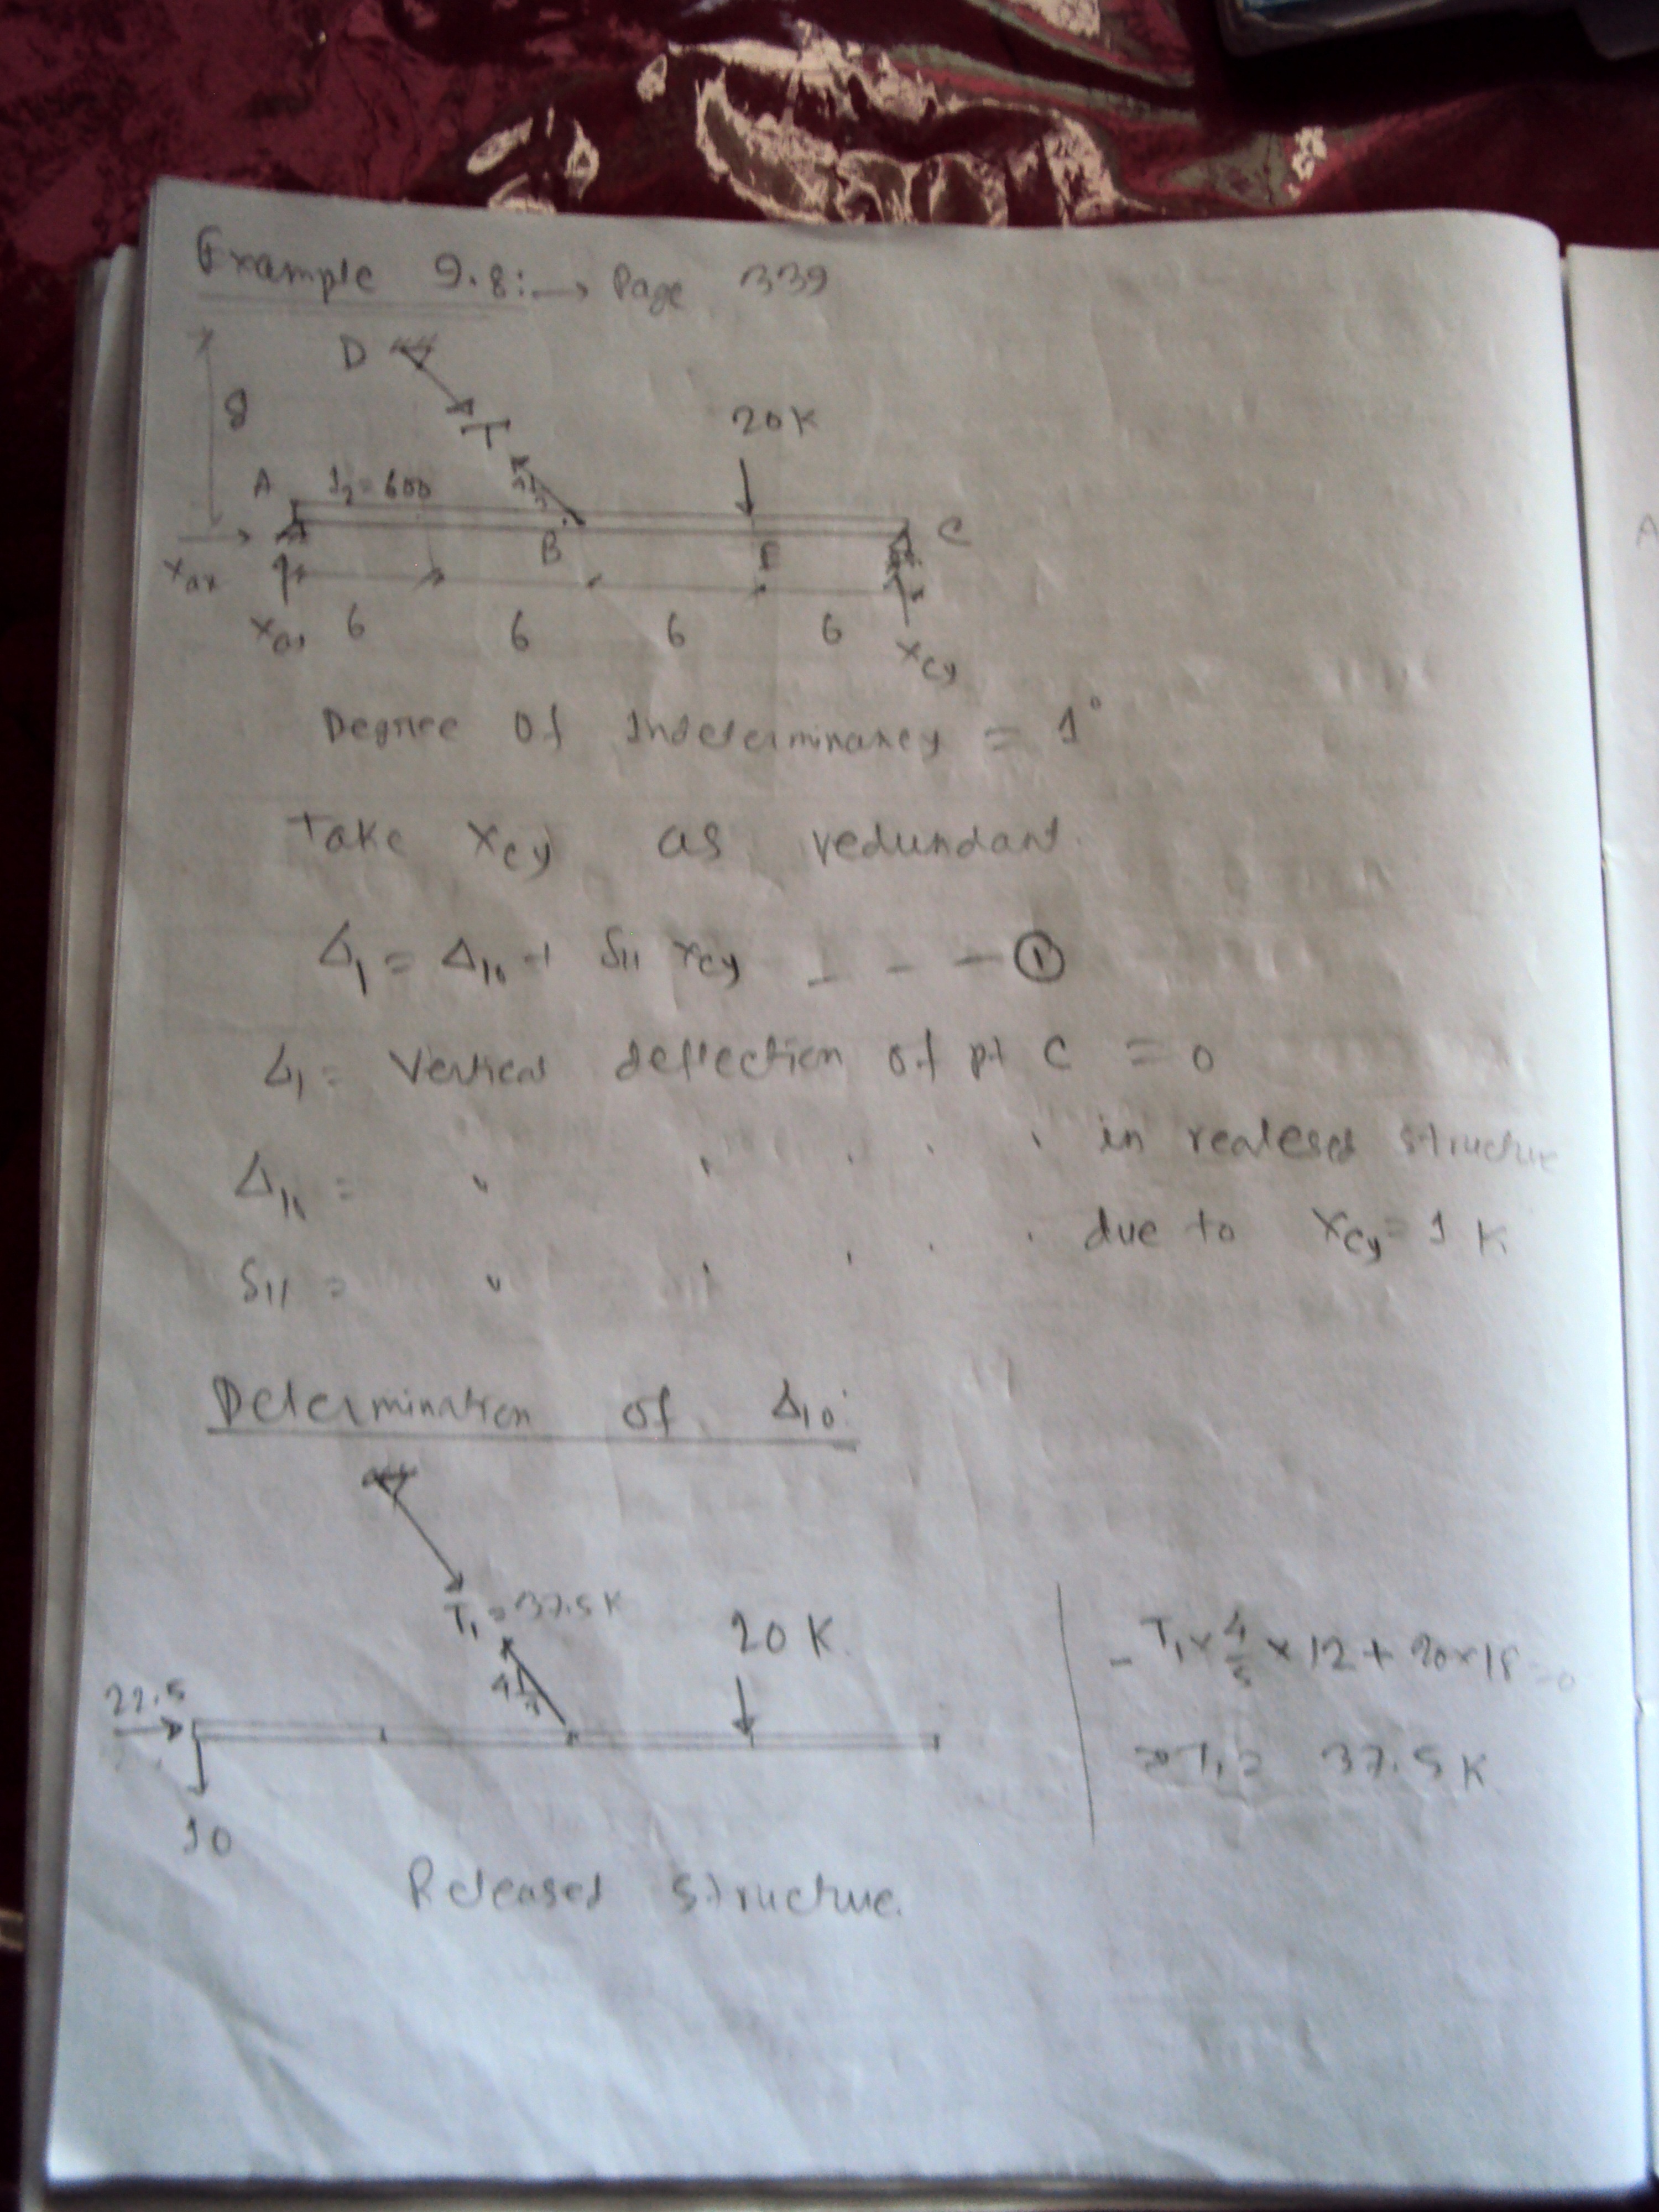 Example 9.8:→ Page 339
D
8
T
20K
A
I₂=600
B
E
C
Xax
Xay
6
6
6
6
Xcy
Degree of Indeterminancy = 1°
Take Xcy as redundant.
Δ₁ = Δ₁₀ + δ₁₁ Xcy - - - ①
Δ₁ = Vertical deflection of pt C = 0
Δ₁₀ = " " " " " in realesed structure
δ₁₁ = " " " " " due to Xcy = 1 K
Determination of Δ₁₀:
T₁ = 37.5K
20 K
22.5
10
- T₁ × 4/5 × 12 + 20×18 = 0
⇒ T₁ = 37.5 K
Released structure.